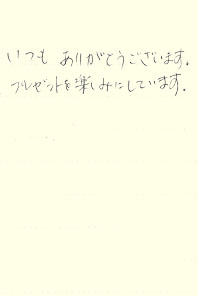 いつも ありがとうございます.
プレゼントを楽しみにしています.